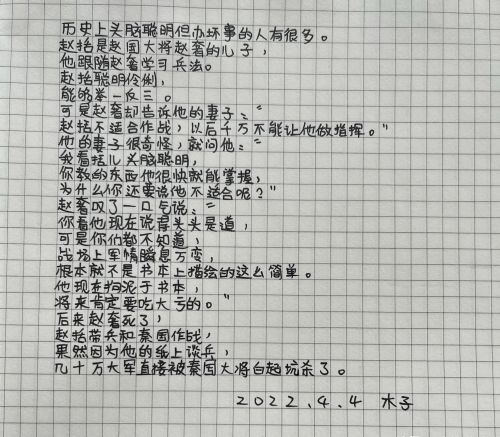 历史上头脑聪明但办坏事的人有很多。
赵括是赵国大将赵奢的儿子，
他跟随赵奢学习兵法。
赵括聪明伶俐，
能够举一反三。
可是赵奢却告诉他的妻子：“
赵括不适合作战，以后千万不能让他做指挥。”
他的妻子很奇怪，就问他：“
我看括儿头脑聪明，
你教的东西他很快就能掌握，
为什么你还要说他不适合呢？”
赵奢叹了一口气说：“
你看他现在说得头头是道，
可是你们都不知道，
战场上军情瞬息万变，
根本就不是书本上描绘的这么简单。
他现在拘泥于书本，
将来肯定要吃大亏的。”
后来赵奢死了，
赵括带兵和秦国作战，
果然因为他的纸上谈兵，
几十万大军直接被秦国大将白起坑杀了。
2022.4.4 木子